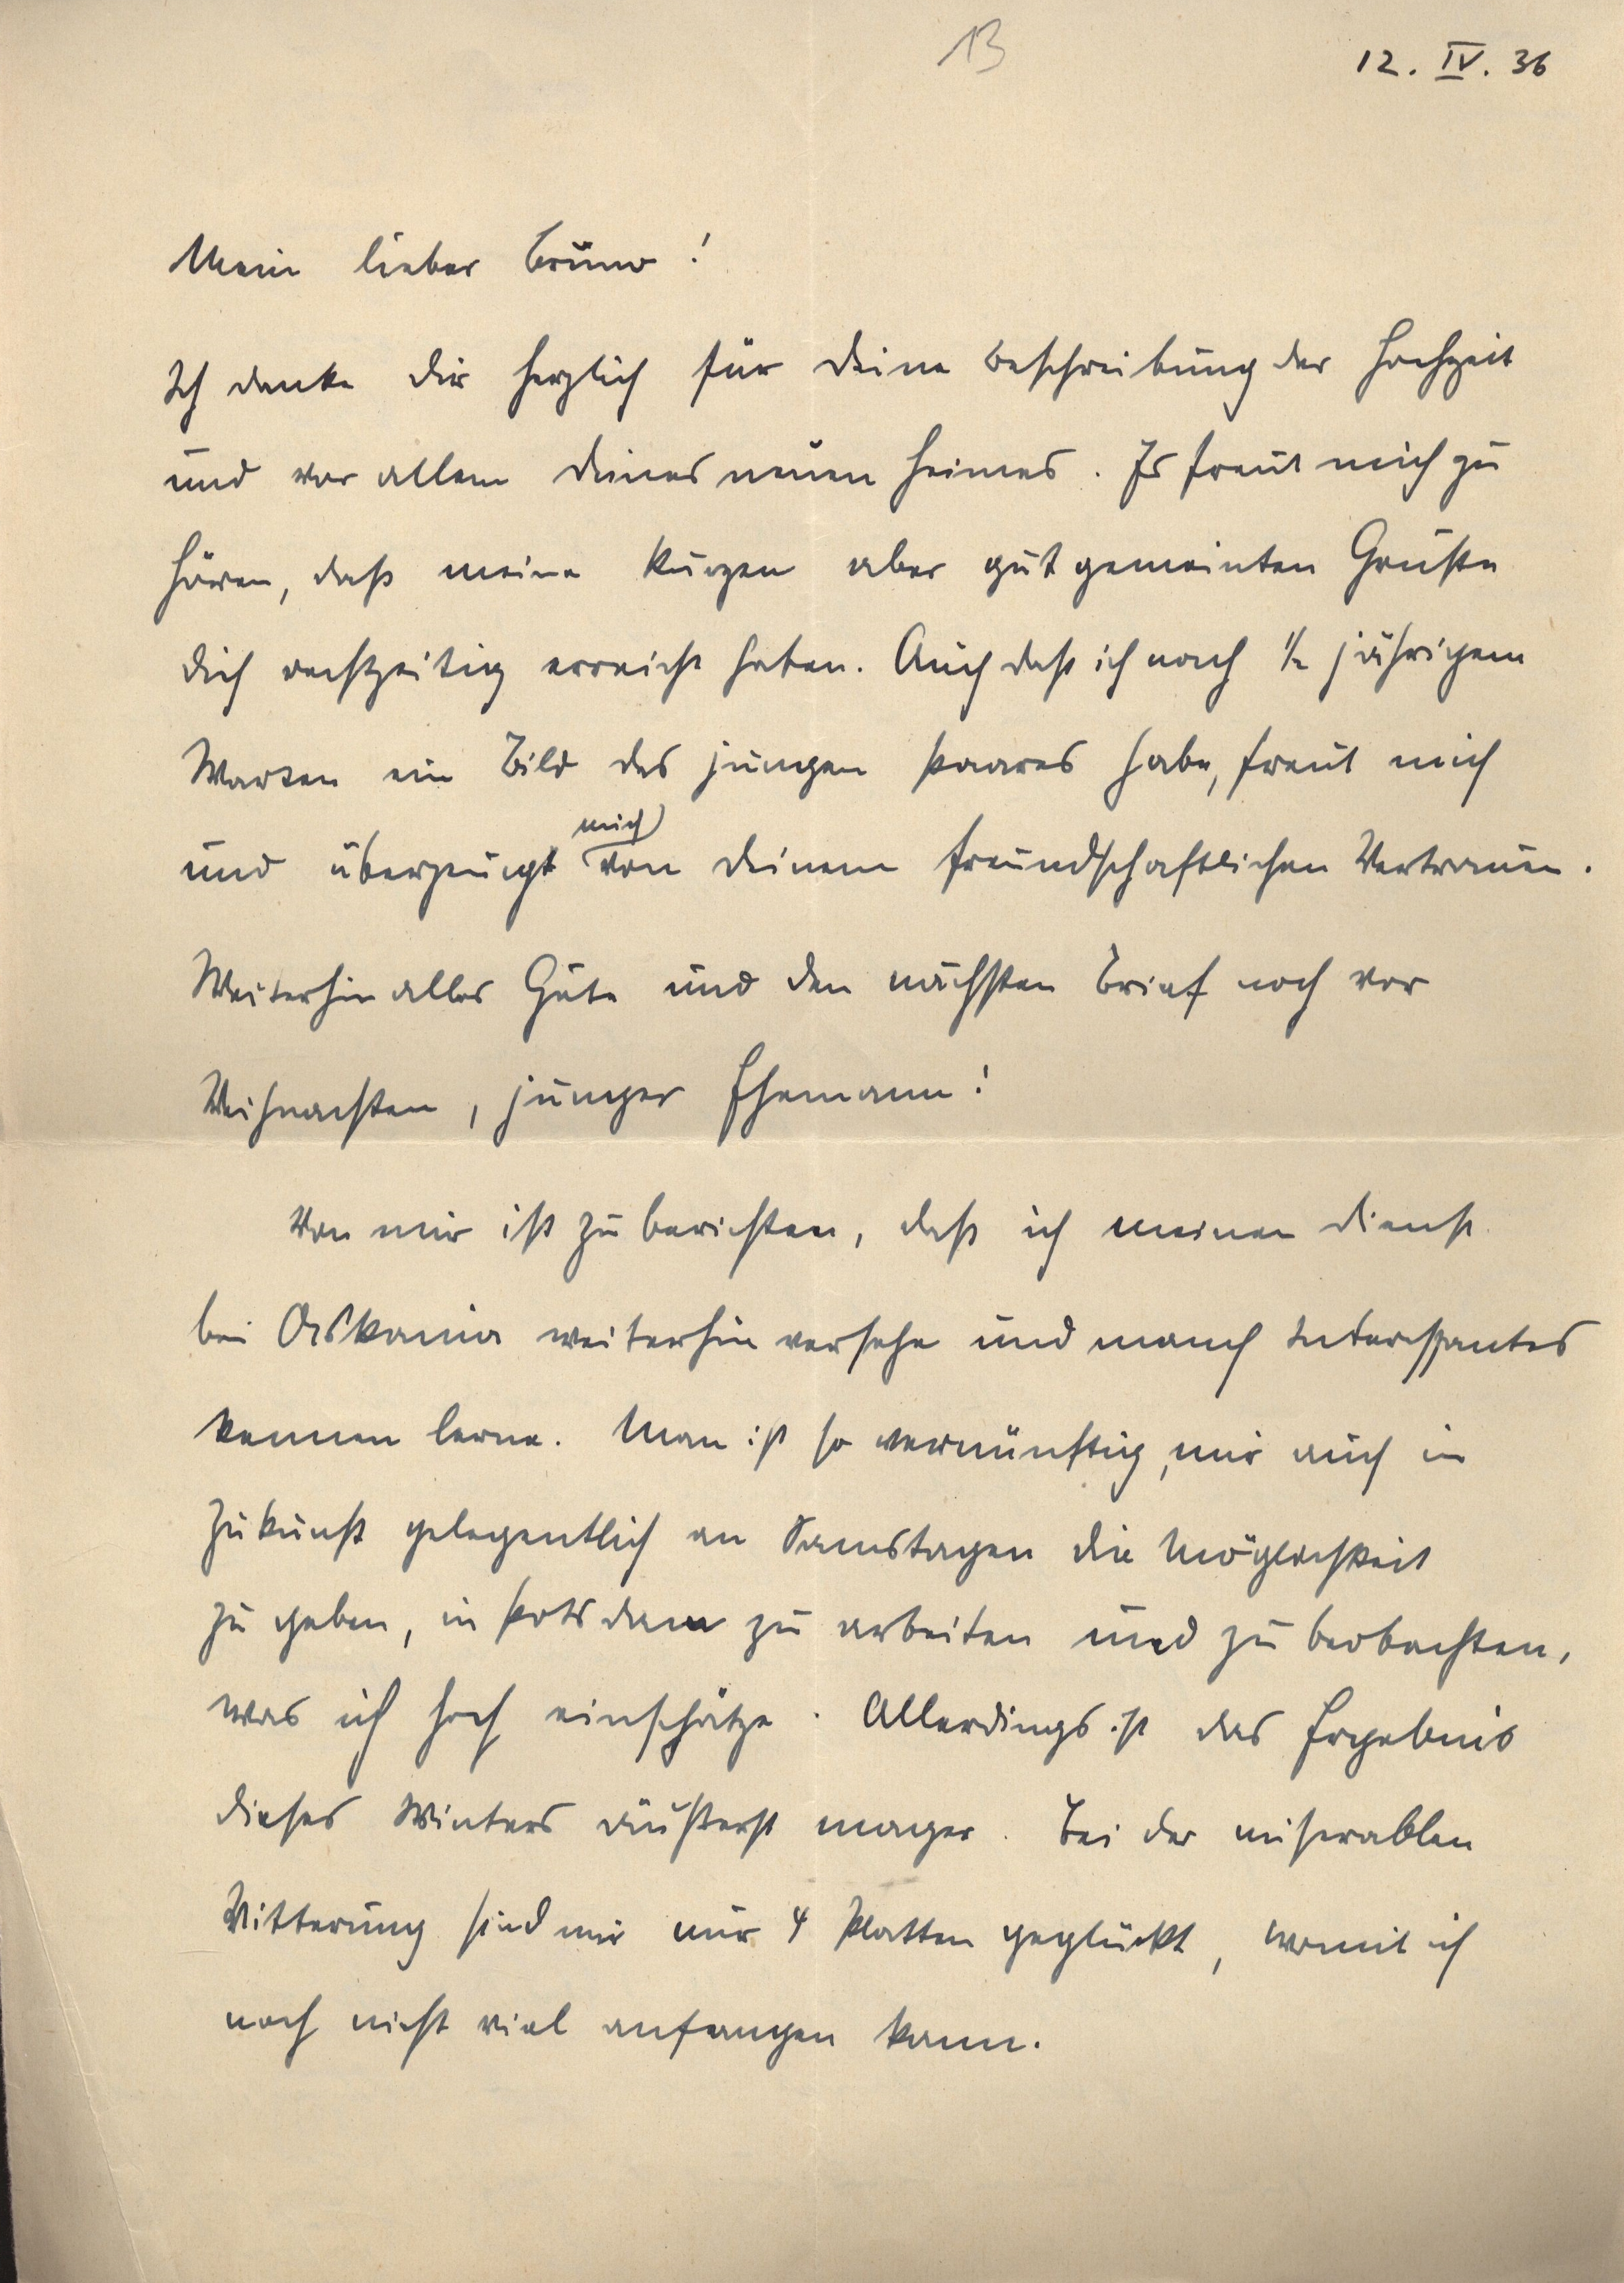 13
12. IV. 36
Mein lieber Bruno!
Ich danke Dir herzlich für Deine Beschreibung der Hochzeit
und vor allem Deines neuen Heimes. Es freut mich zu
hören, daß meine kurzen aber gut gemeinten Grüße
Dich rechtzeitig erreicht haben. Auch daß ich nach 1/2 jährigem
Warten ein Bild des jungen Paares habe, freut mich
mich
und überzeugt von Deinem freundschaftlichen Vertrauen.
Weiterhin alles Gute und den nächsten Brief noch vor
Weihnachten, junger Ehemann!
Von mir ist zu berichten, daß ich meinen Dienst
bei Askania weiterhin versehe und manch Interessantes
kennen lerne. Man ist so vernünftig, mir auch in
Zukunft gelegentlich an Samstagen die Möglichkeit
zu geben, in Potsdam zu arbeiten und zu beobachten,
was ich hoch einschätze. Allerdings ist das Ergebnis
dieses Winters äußerst mager. Bei der miserablen
Witterung sind mir nur 4 Platten geglückt, womit ich
noch nicht viel anfangen kann.